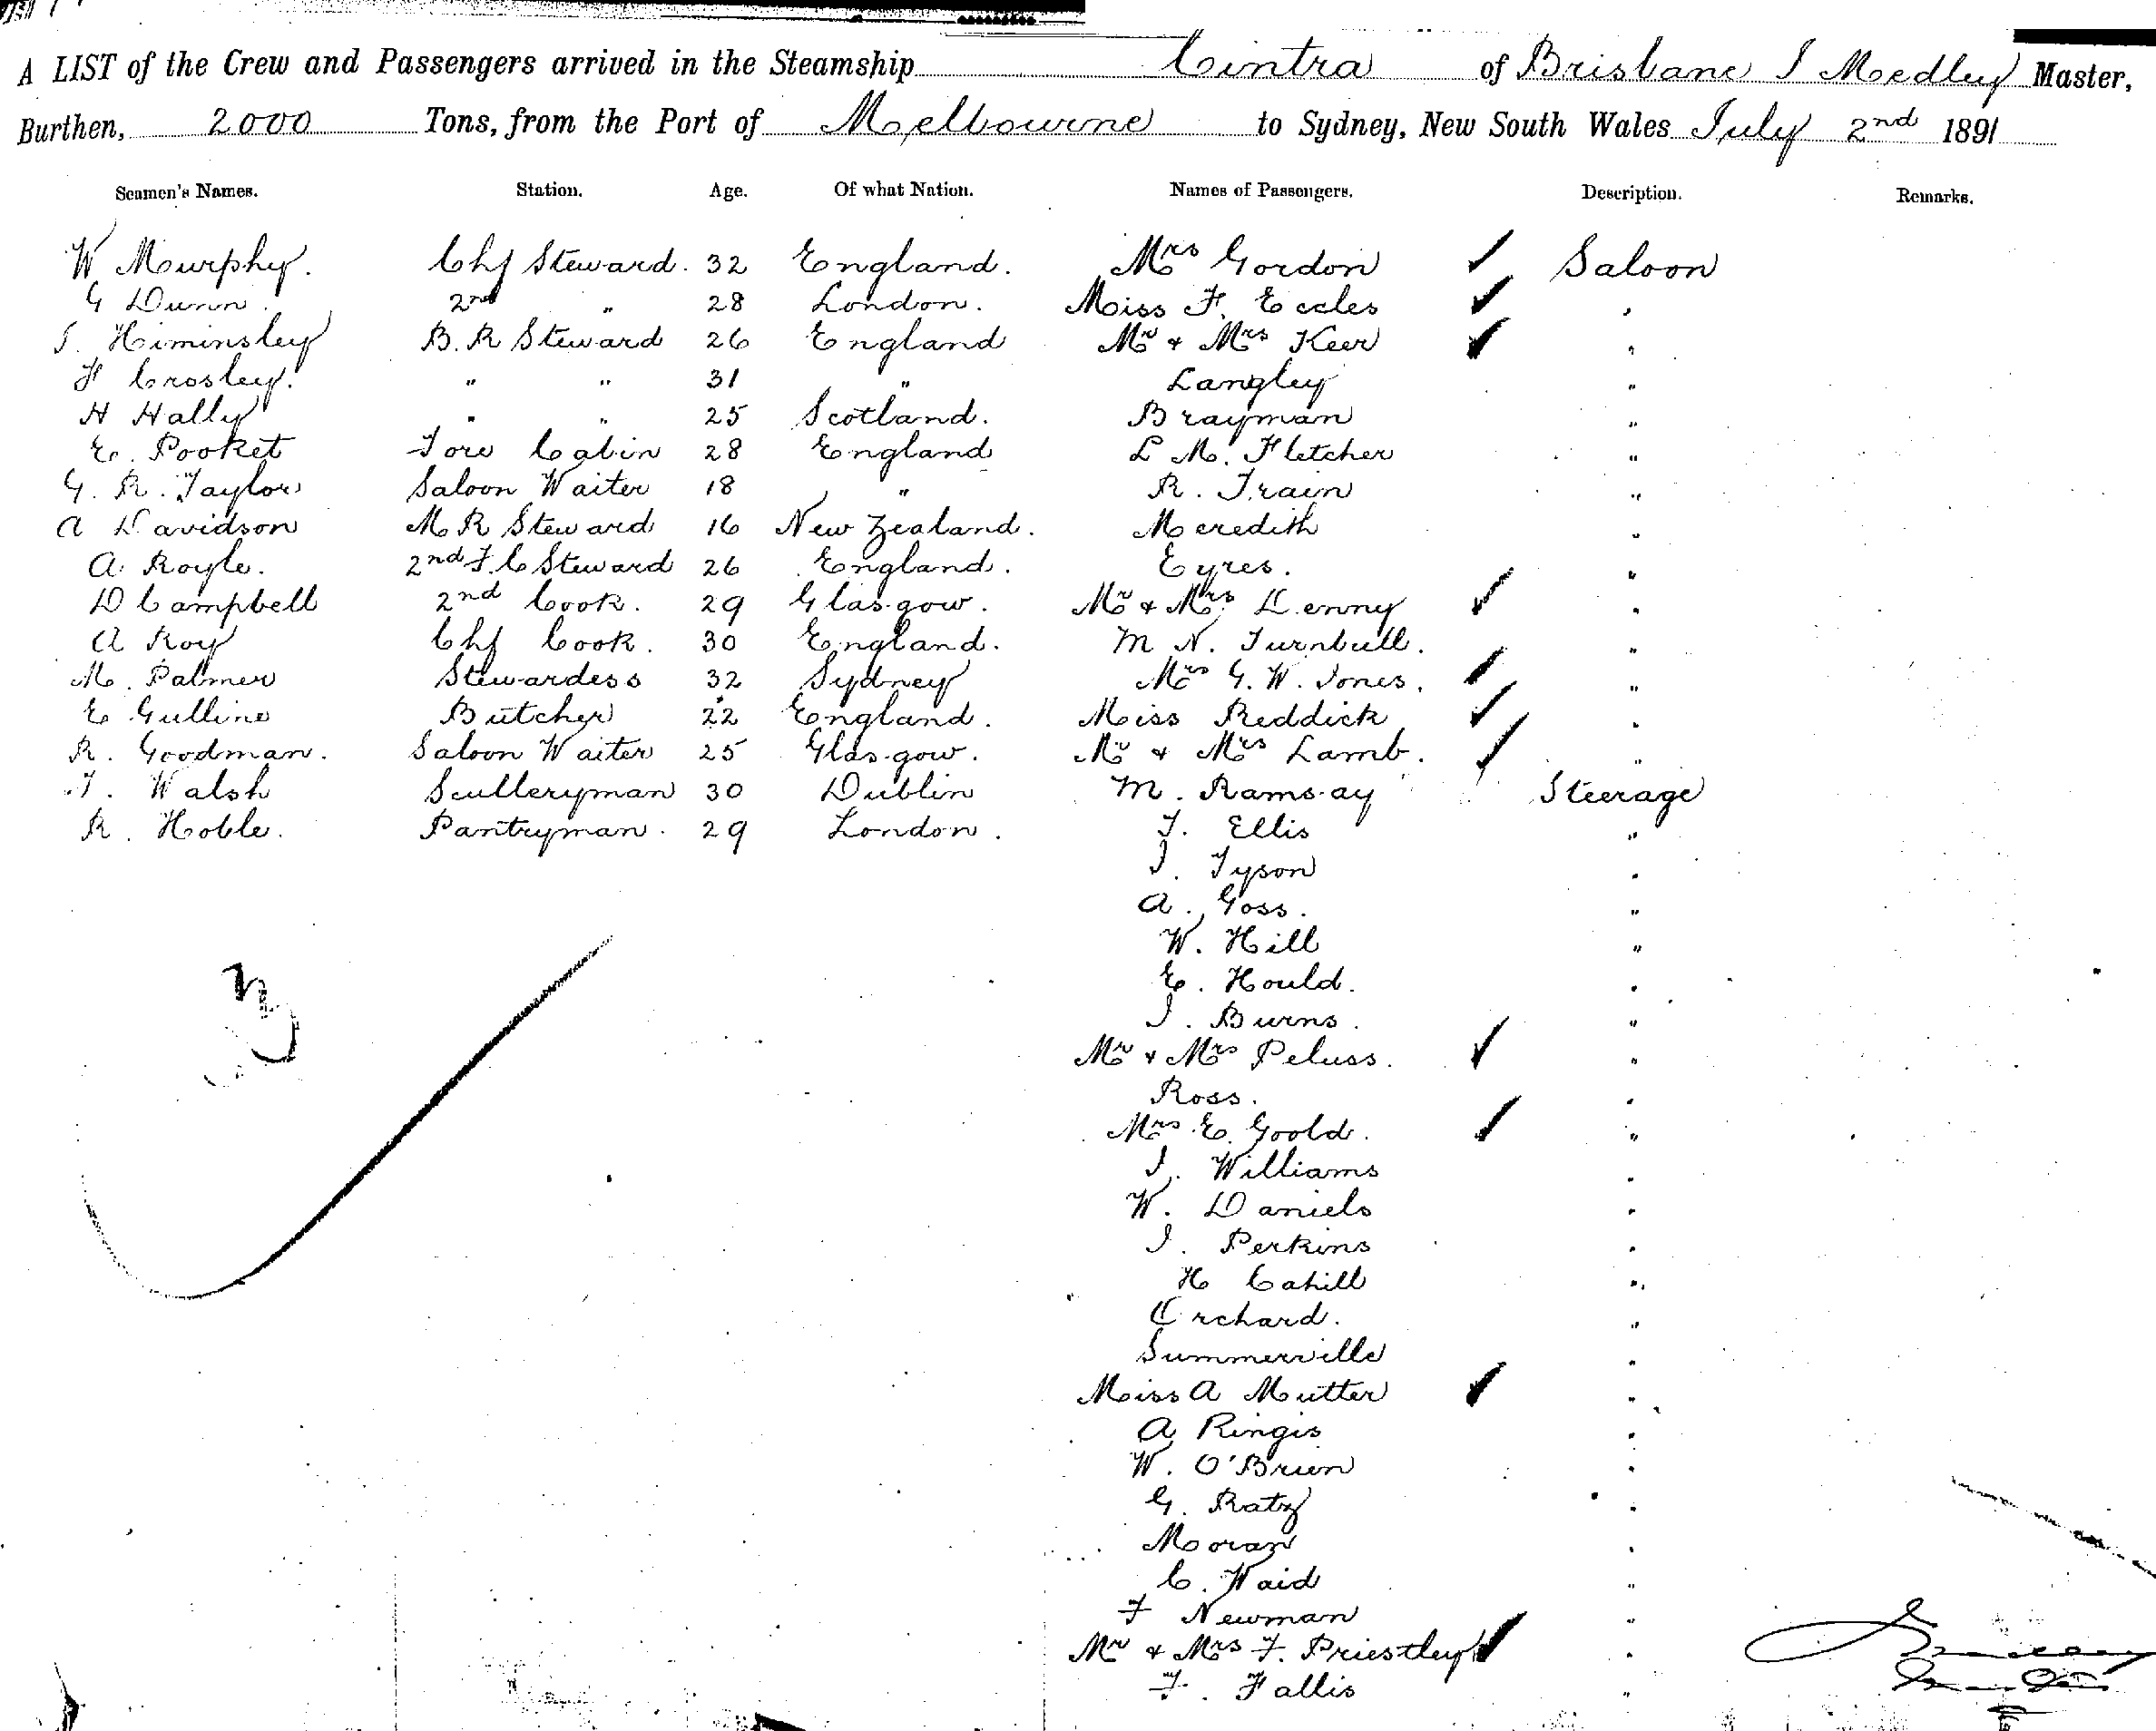 A LIST of the Crew and Passengers arrived in the Steamship Cintra of Brisbane J Medley Master,
Burthen, 2000 Tons, from the Port of Melbourne to Sydney, New South Wales July 2nd 1891
Seamen's Names. Station. Age. Of what Nation. Names of Passengers. Description. Remarks.
W Murphy. Chf Steward. 32 England. Mrs Gordon ✓ Saloon
G Dunn. 2nd " 28 London. Miss F. Eccles ✓ "
J. Himinsley B. R Steward 26 England Mr & Mrs Keer ✓ "
F Crosley. " " 31 " Langley "
H Hally " " 25 Scotland. Brayman "
E. Pooket Fore Cabin 28 England L M. Fletcher "
G. R. Taylor Saloon Waiter 18 " R. Train "
A Davidson M R Steward 16 New Zealand. Meredith "
A Royle. 2nd F. C Steward 26 England. Eyres. "
D Campbell 2nd Cook. 29 Glasgow. Mr & Mrs Denny ✓ "
A Roy Chf Cook. 30 England. M N. Turnbull. "
M. Palmer Stewardess 32 Sydney Mrs G. W. Jones. ✓ "
E Gulline Butcher 22 England. Miss Reddick ✓ "
R. Goodman. Saloon Waiter 25 Glasgow. Mr & Mrs Lamb. ✓ "
T. Walsh Sculleryman 30 Dublin M. Ramsay Steerage
R. Hoble. Pantryman. 29 London. T. Ellis "
J. Tyson "
A. Goss. "
W. Hill "
E. Hould. "
J. Burns. "
Mr & Mrs Peluss. ✓ "
Ross. "
Mrs E. Goold. ✓ "
J. Williams "
W. Daniels "
J. Perkins "
H Cahill "
Orchard. "
Summerville "
Miss A Mutter ✓ "
A Ringis "
W. O'Brien "
G. Ratz "
Moran "
C. Waid "
F Newman "
Mr & Mrs F. Priestley ✓ "
F. Fallis "